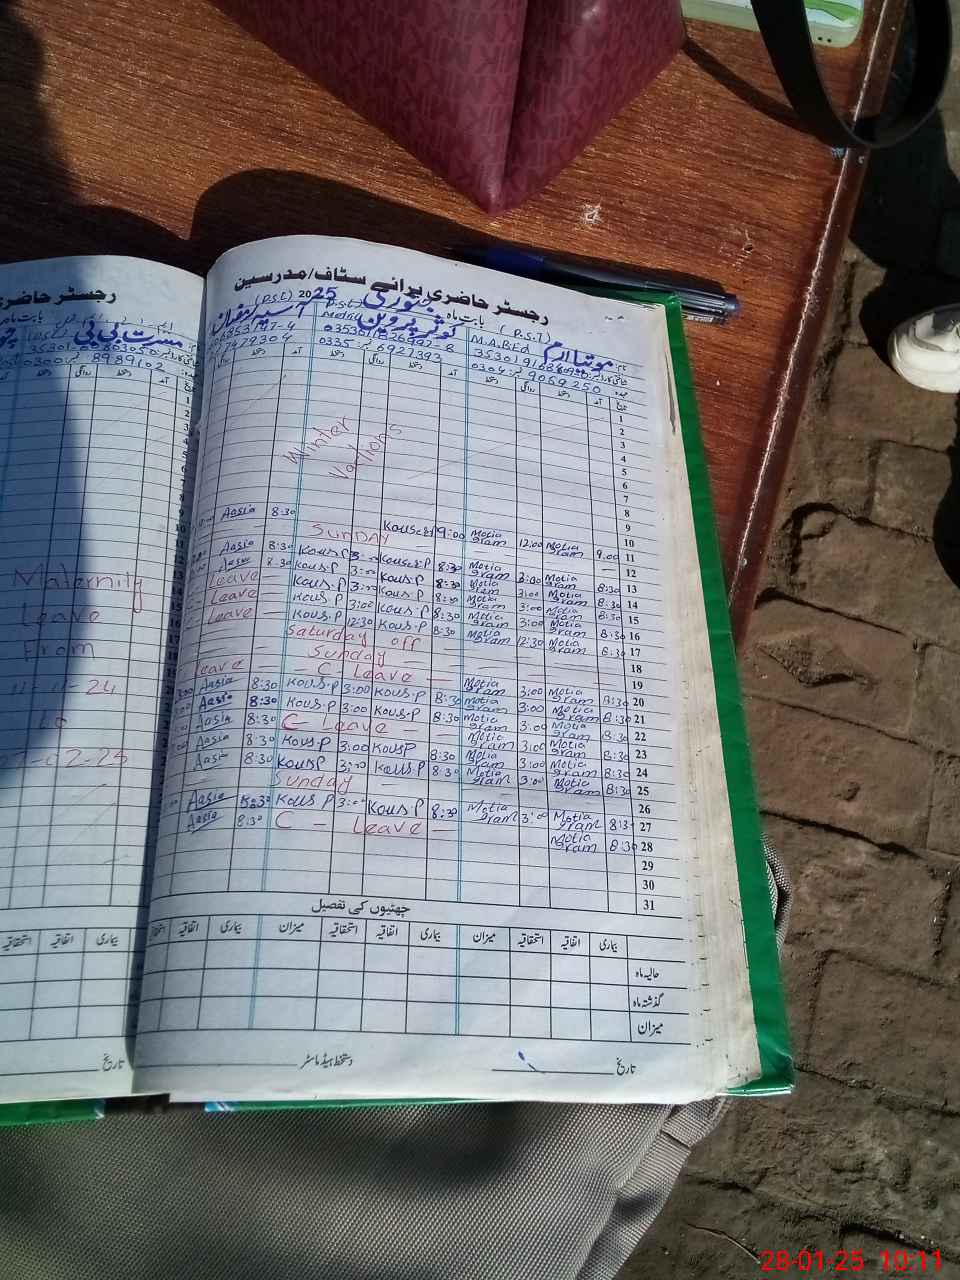 رجسٹر حاضری برائے سٹاف/مدرسین
بابت ماہ جنوری 2025
موتیا ارم
(P.S.T)
M.A.B.Ed
0304 9059250
کوثر پروین
(P.S.T)
0335 6927393
آسیہ
(P.S.T)
تاریخ آمد دستخط روانگی آمد دستخط روانگی آمد دستخط روانگی
1
2
3
4
5
6
7
8
Winter
9
10
11 9:00 Motia Iram 12:00 Motia Iram 9:00 Aasia 8:30
12 Sunday
13 8:30 Motia Iram 3:00 Motia Iram 8:30 Kous.P 3:00 Kous.P 8:30 Aasia
14 8:30 Motia Iram 3:00 Motia Iram 8:30 Kous.P 3:00 Kous.P 8:30 Aasia
15 8:30 Motia Iram 3:00 Motia Iram 8:30 Kous.P 3:00 Kous.P Leave
16 8:30 Motia Iram 3:00 Motia Iram 8:30 Kous.P 3:00 Kous.P Leave
17 8:30 Motia Iram 12:30 Motia Iram 8:30 Kous.P 12:30 Kous.P Leave
18 Saturday off
19 Sunday
20 8:30 Motia Iram 3:00 Motia Iram C Leave Leave
21 8:30 Motia Iram 3:00 Motia Iram 8:30 Kous.P 3:00 Kous.P 8:30 Aasia
22 8:30 Motia Iram 3:00 Motia Iram 8:30 Kous.P 3:00 Kous.P 8:30 Aasia
23 8:30 Motia Iram 3:00 Motia Iram C Leave 8:30 Aasia
24 8:30 Motia Iram 3:00 Motia Iram 8:30 Kous.P 3:00 Kous.P 8:30 Aasia
25 8:30 Motia Iram 3:00 Motia Iram 8:30 Kous.P 3:00 Kous.P 8:30 Aasia
26 Sunday
27 8:30 Motia Iram 3:00 Motia Iram 8:30 Kous.P 3:00 Kous.P 8:30 Aasia
28 8:30 Motia Iram C Leave 8:30 Aasia
29
30
31
چھٹیوں کی تفصیل
بیماری اتفاقیہ استحقاقیہ میزان بیماری اتفاقیہ استحقاقیہ میزان بیماری اتفاقیہ استحقاقیہ
حالیہ ماہ
گذشتہ ماہ
میزان
تاریخ دستخط ہیڈ ماسٹر
رجسٹر حاضری
مسرت بی بی
8989102
Maternity
Leave
From
11-11-24
to
02-25
بیماری اتفاقیہ استحقاقیہ
تاریخ
28-01-25 10:11